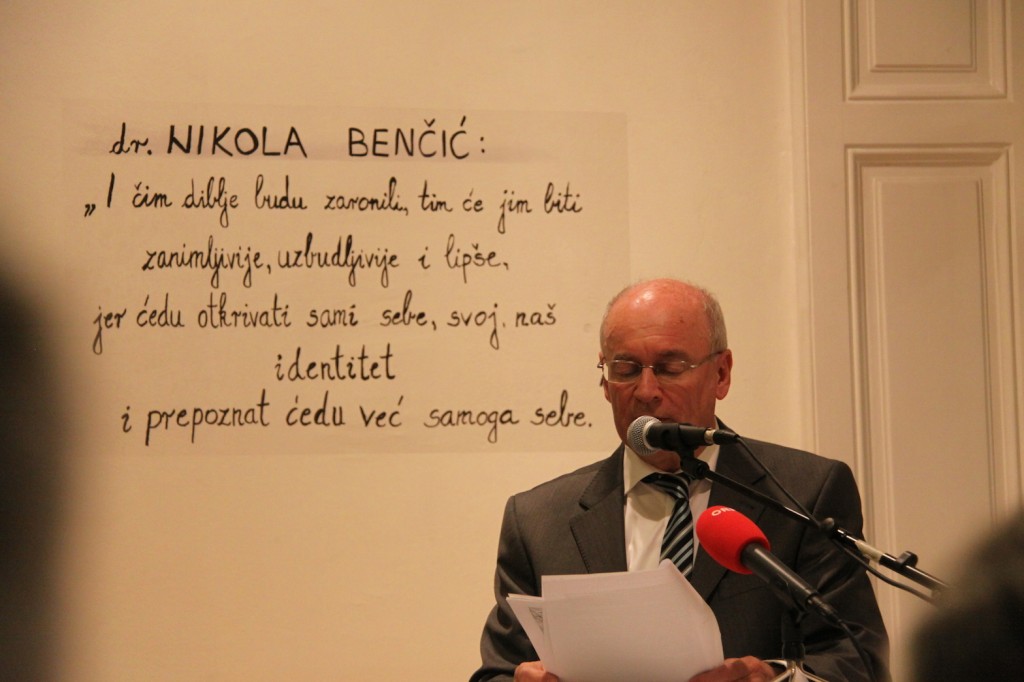 dr. NIKOLA BENČIĆ:
„I čim diblje budu zaronili, tim će jim biti
zanimljivije, uzbudljivije i lipše,
jer ćedu otkrivati sami sebe, svoj, naš
identitet
i prepoznat ćedu već samoga sebe.